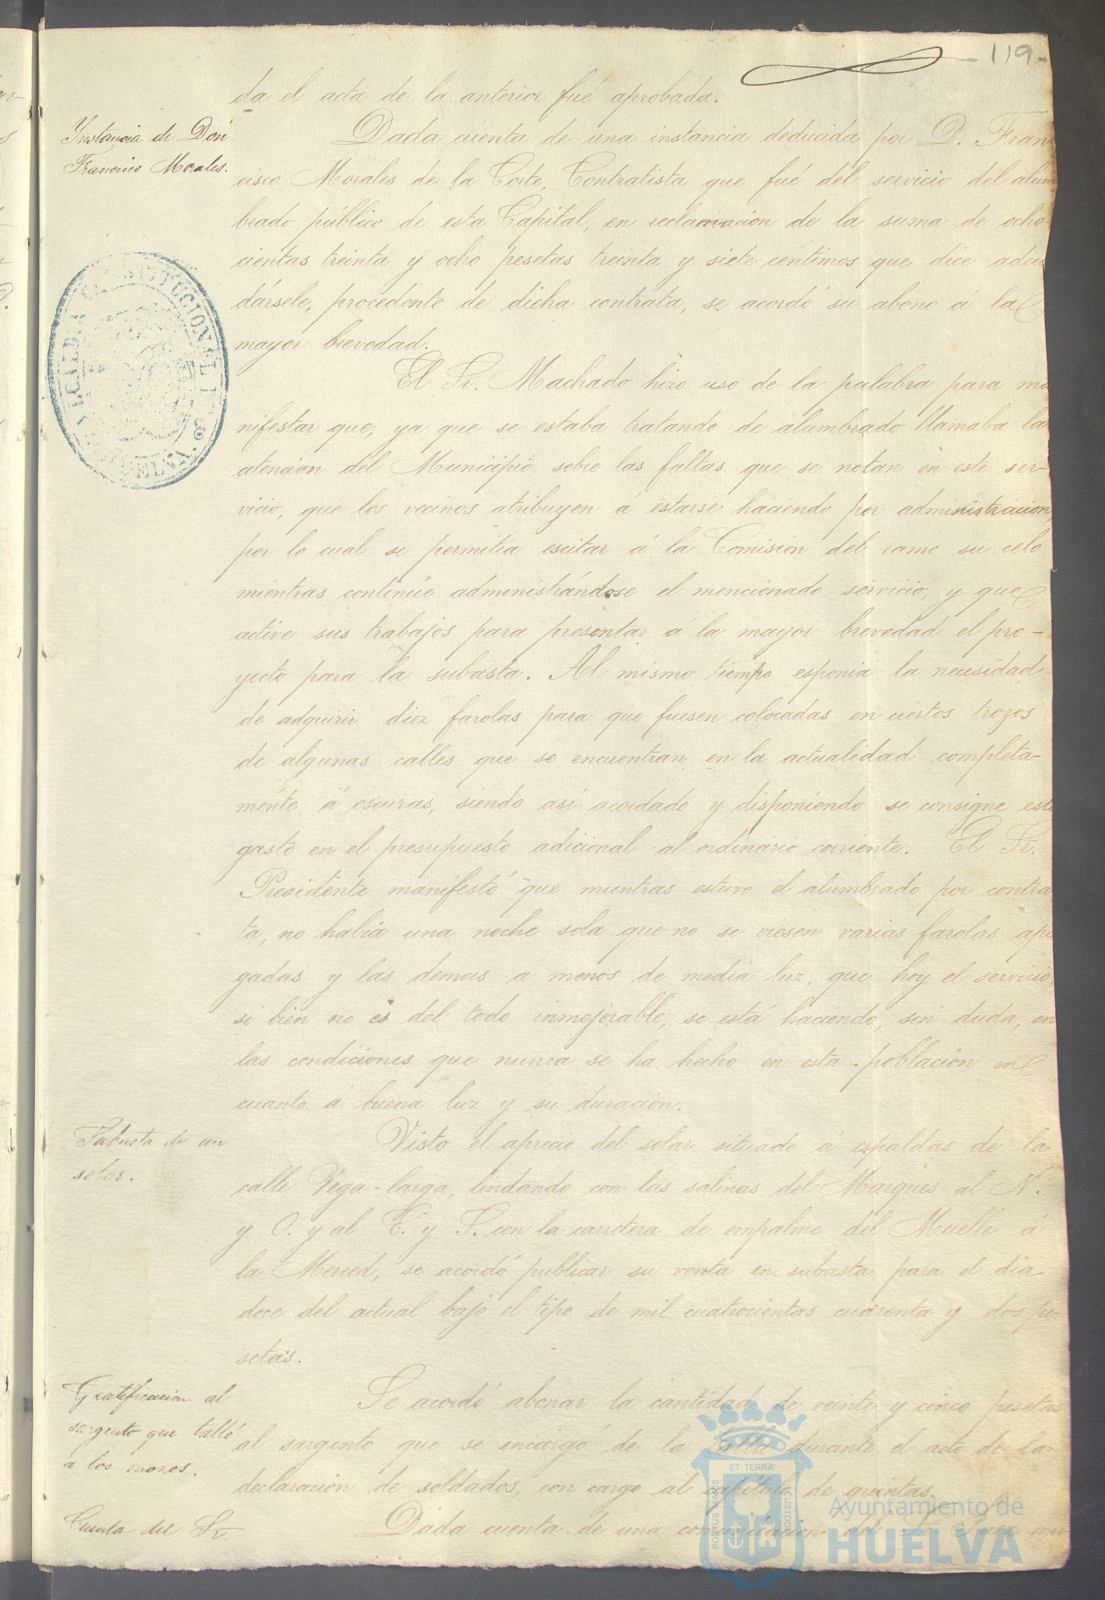 -119-
da el acta de la anterior fué aprobada.
Instancia de Don
Francisco Morales.
Dada cuenta de una instancia deducida por D. Fran
cisco Morales de la Corte, Contratista que fué del servicio del alum
brado público de esta Capital, en reclamación de la suma de ocho
cientas treinta y ocho pesetas treinta y siete céntimos que dice adeu
dársele, procedente de dicha contrata, se acordó su abono á la
mayor brevedad.
ALCALDIA CONSTITUCIONAL DE HUELVA
El Sr. Machado hizo uso de la palabra para ma
nifestar que, ya que se estaba tratando de alumbrado llamaba la
atencion del Municipio sobre las faltas que se notan en este ser-
vicio, que los vecinos atribuyen á estarse haciendo por administración,
por lo cual se permitia escitar á la Comision del ramo su celo
mientras continúe administrándose el mencionado servicio, y que
active sus trabajos para presentar á la mayor brevedad el pro-
yecto para la subasta. Al mismo tiempo esponia la necesidad
de adquirir diez farolas para que fuesen colocadas en ciertos trozos
de algunas calles que se encuentran en la actualidad completa-
mente á oscuras, siendo así acordado y disponiendo se consigne este
gasto en el presupuesto adicional al ordinario corriente. El Sr.
Presidente manifestó que mientras estuvo el alumbrado por contra
ta, no habia una noche sola que no se viesen varias farolas apa
gadas y las demas á menos de media luz, que hoy el servicio,
si bien no es del todo inmejorable, se está haciendo, sin duda, en
las condiciones que nunca se ha hecho en esta poblacion en
cuanto á buena luz y su duracion.
Subasta de un
solar.
Visto el aprecio del solar situado á espaldas de la
calle Vega-larga, lindando con las salinas del Marqués al N.
y O. y al E. y S. con la carretera de empalme del Muelle á
la Merced, se acordó publicar su venta en subasta para el dia
doce del actual bajo el tipo de mil cuatrocientas cuarenta y dos pe-
setas.
Gratificacion al
sargento que talló
a los mozos.
Se acordó abonar la cantidad de veinte y cinco pesetas
al sargento que se encargó de la talla durante el acto de la
declaración de soldados, con cargo al capítulo de quintas.
Cuenta del Sr.
Dada cuenta de una comunicación del Sr. Juez mu
PORTUS MARIS
ET TERRÆ
CUSTODIA
Ayuntamiento de
HUELVA